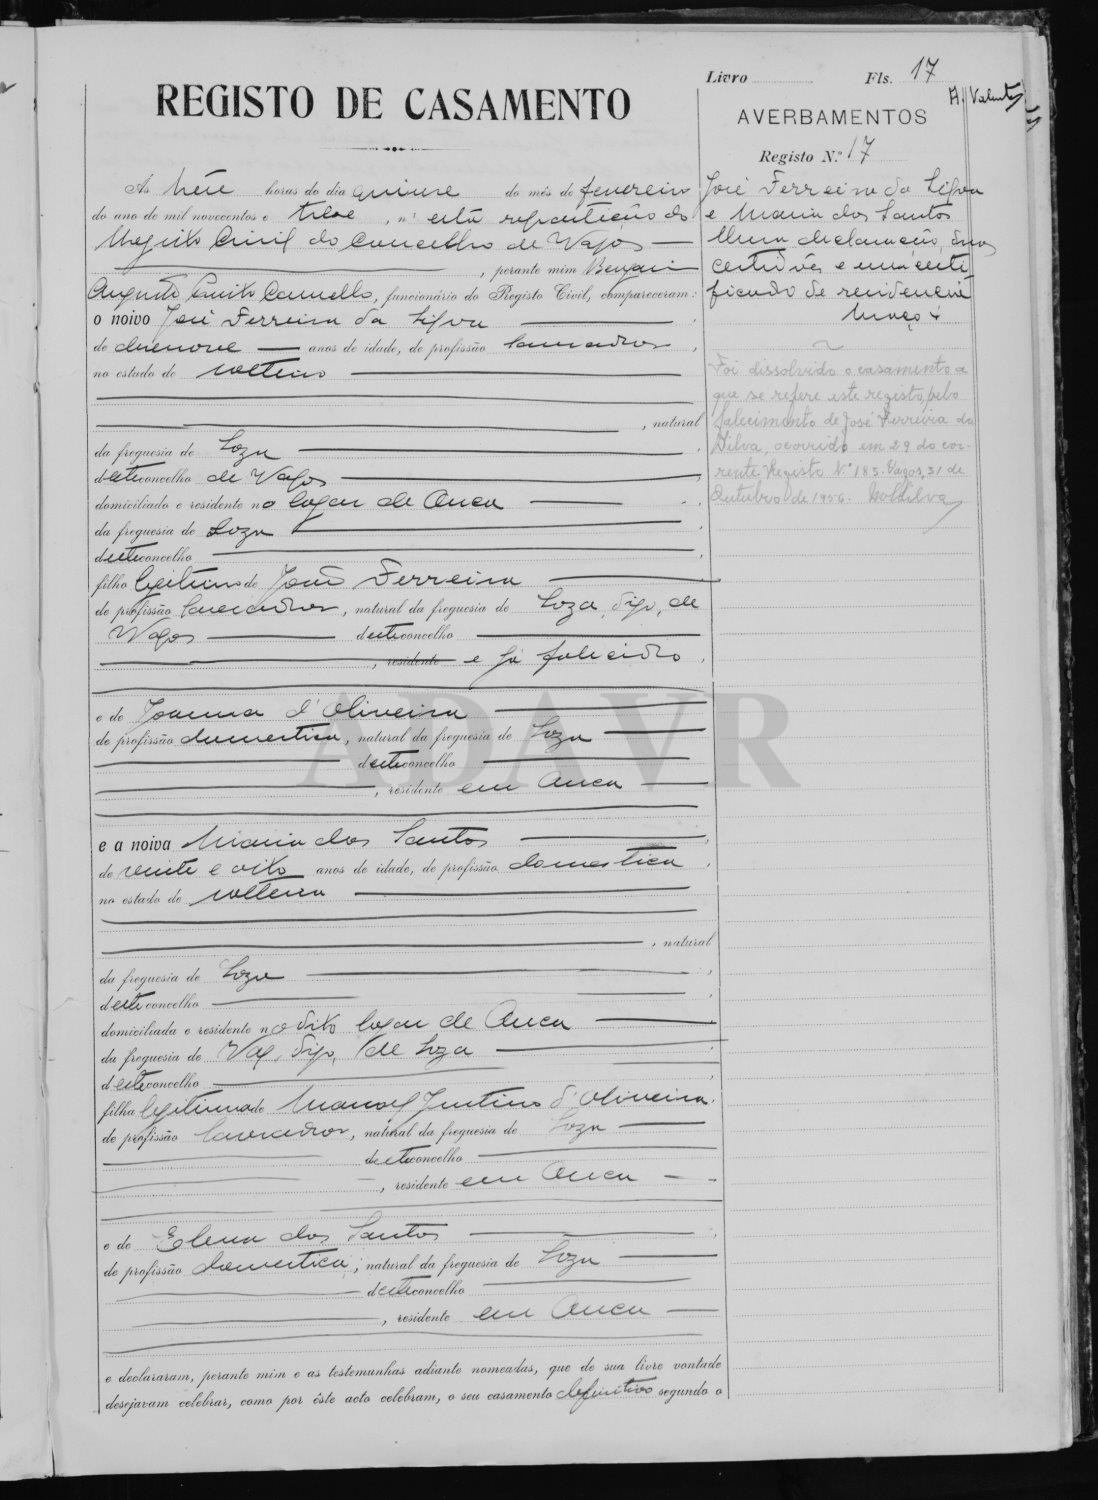 Livro Fls. 17
REGISTO DE CASAMENTO
AVERBAMENTOS
Registo N.º 17
Ás treze horas do dia quinze do mês de fevereiro
do ano de mil novecentos e treze, n'esta repartição do
Registo Civil do Concelho de Vagos
, perante mim
Augusto Camello, funcionário do Registo Civil, compareceram:
o noivo José Ferreira da Silva
de anos de idade, de profissão lavrador,
no estado de solteiro
, natural
da freguesia de Soza
deste concelho de Vagos
domiciliado e residente no logar de Ouca
da freguesia de Soza
deste concelho
filho legitimo de João Ferreira
de profissão lavrador, natural da freguesia de Soza, digo, de
Vagos deste concelho
, residente e já falecido
e de Joanna d'Oliveira
de profissão domestica, natural da freguesia de Soza
deste concelho
, residente em Ouca
e a noiva Maria dos Santos
de vinte e oito anos de idade, de profissão domestica
no estado de solteira
, natural
da freguesia de Soza
deste concelho
domiciliada e residente no dito logar de Ouca
da freguesia de Vag, digo, de Soza
deste concelho
filha legitima de Manoel Justino d'Oliveira
de profissão lavrador, natural da freguesia de Soza
deste concelho
, residente em Ouca
e de Elena dos Santos
de profissão domestica, natural da freguesia de Soza
deste concelho
, residente em Ouca
e declararam, perante mim e as testemunhas adiante nomeadas, que de sua livre vontade
desejavam celebrar, como por êste acto celebram, o seu casamento definitivo segundo o
José Ferreira da Silva
e Maria dos Santos
Uma declaração, duas
certidões e um certi
ficado de residencia
Maço 4
Foi dissolvido o casamento a
que se refere este registo, pelo
falecimento de José Ferreira da
Silva, ocorrido em 29 do cor-
rente. Registo N.º 183. Vagos, 31 de
Outubro de 1956.
ADAVR